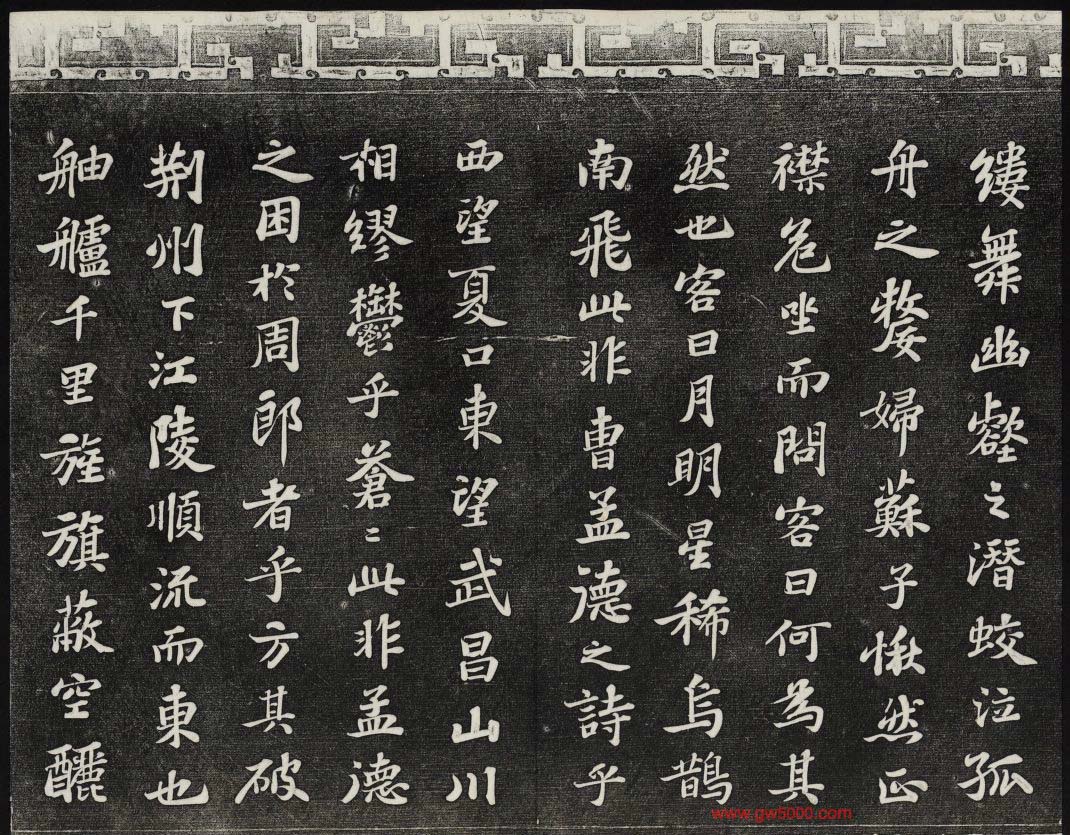 縷舞幽壑之潛蛟泣孤
舟之嫠婦蘇子愀然正
襟危坐而問客曰何為其
然也客曰月明星稀烏鵲
南飛此非曹孟德之詩乎
西望夏口東望武昌山川
相繆鬱乎蒼〻此非孟德
之困於周郎者乎方其破
荆州下江陵順流而東也
舳艫千里旌旗蔽空釃
www.gw5000.com